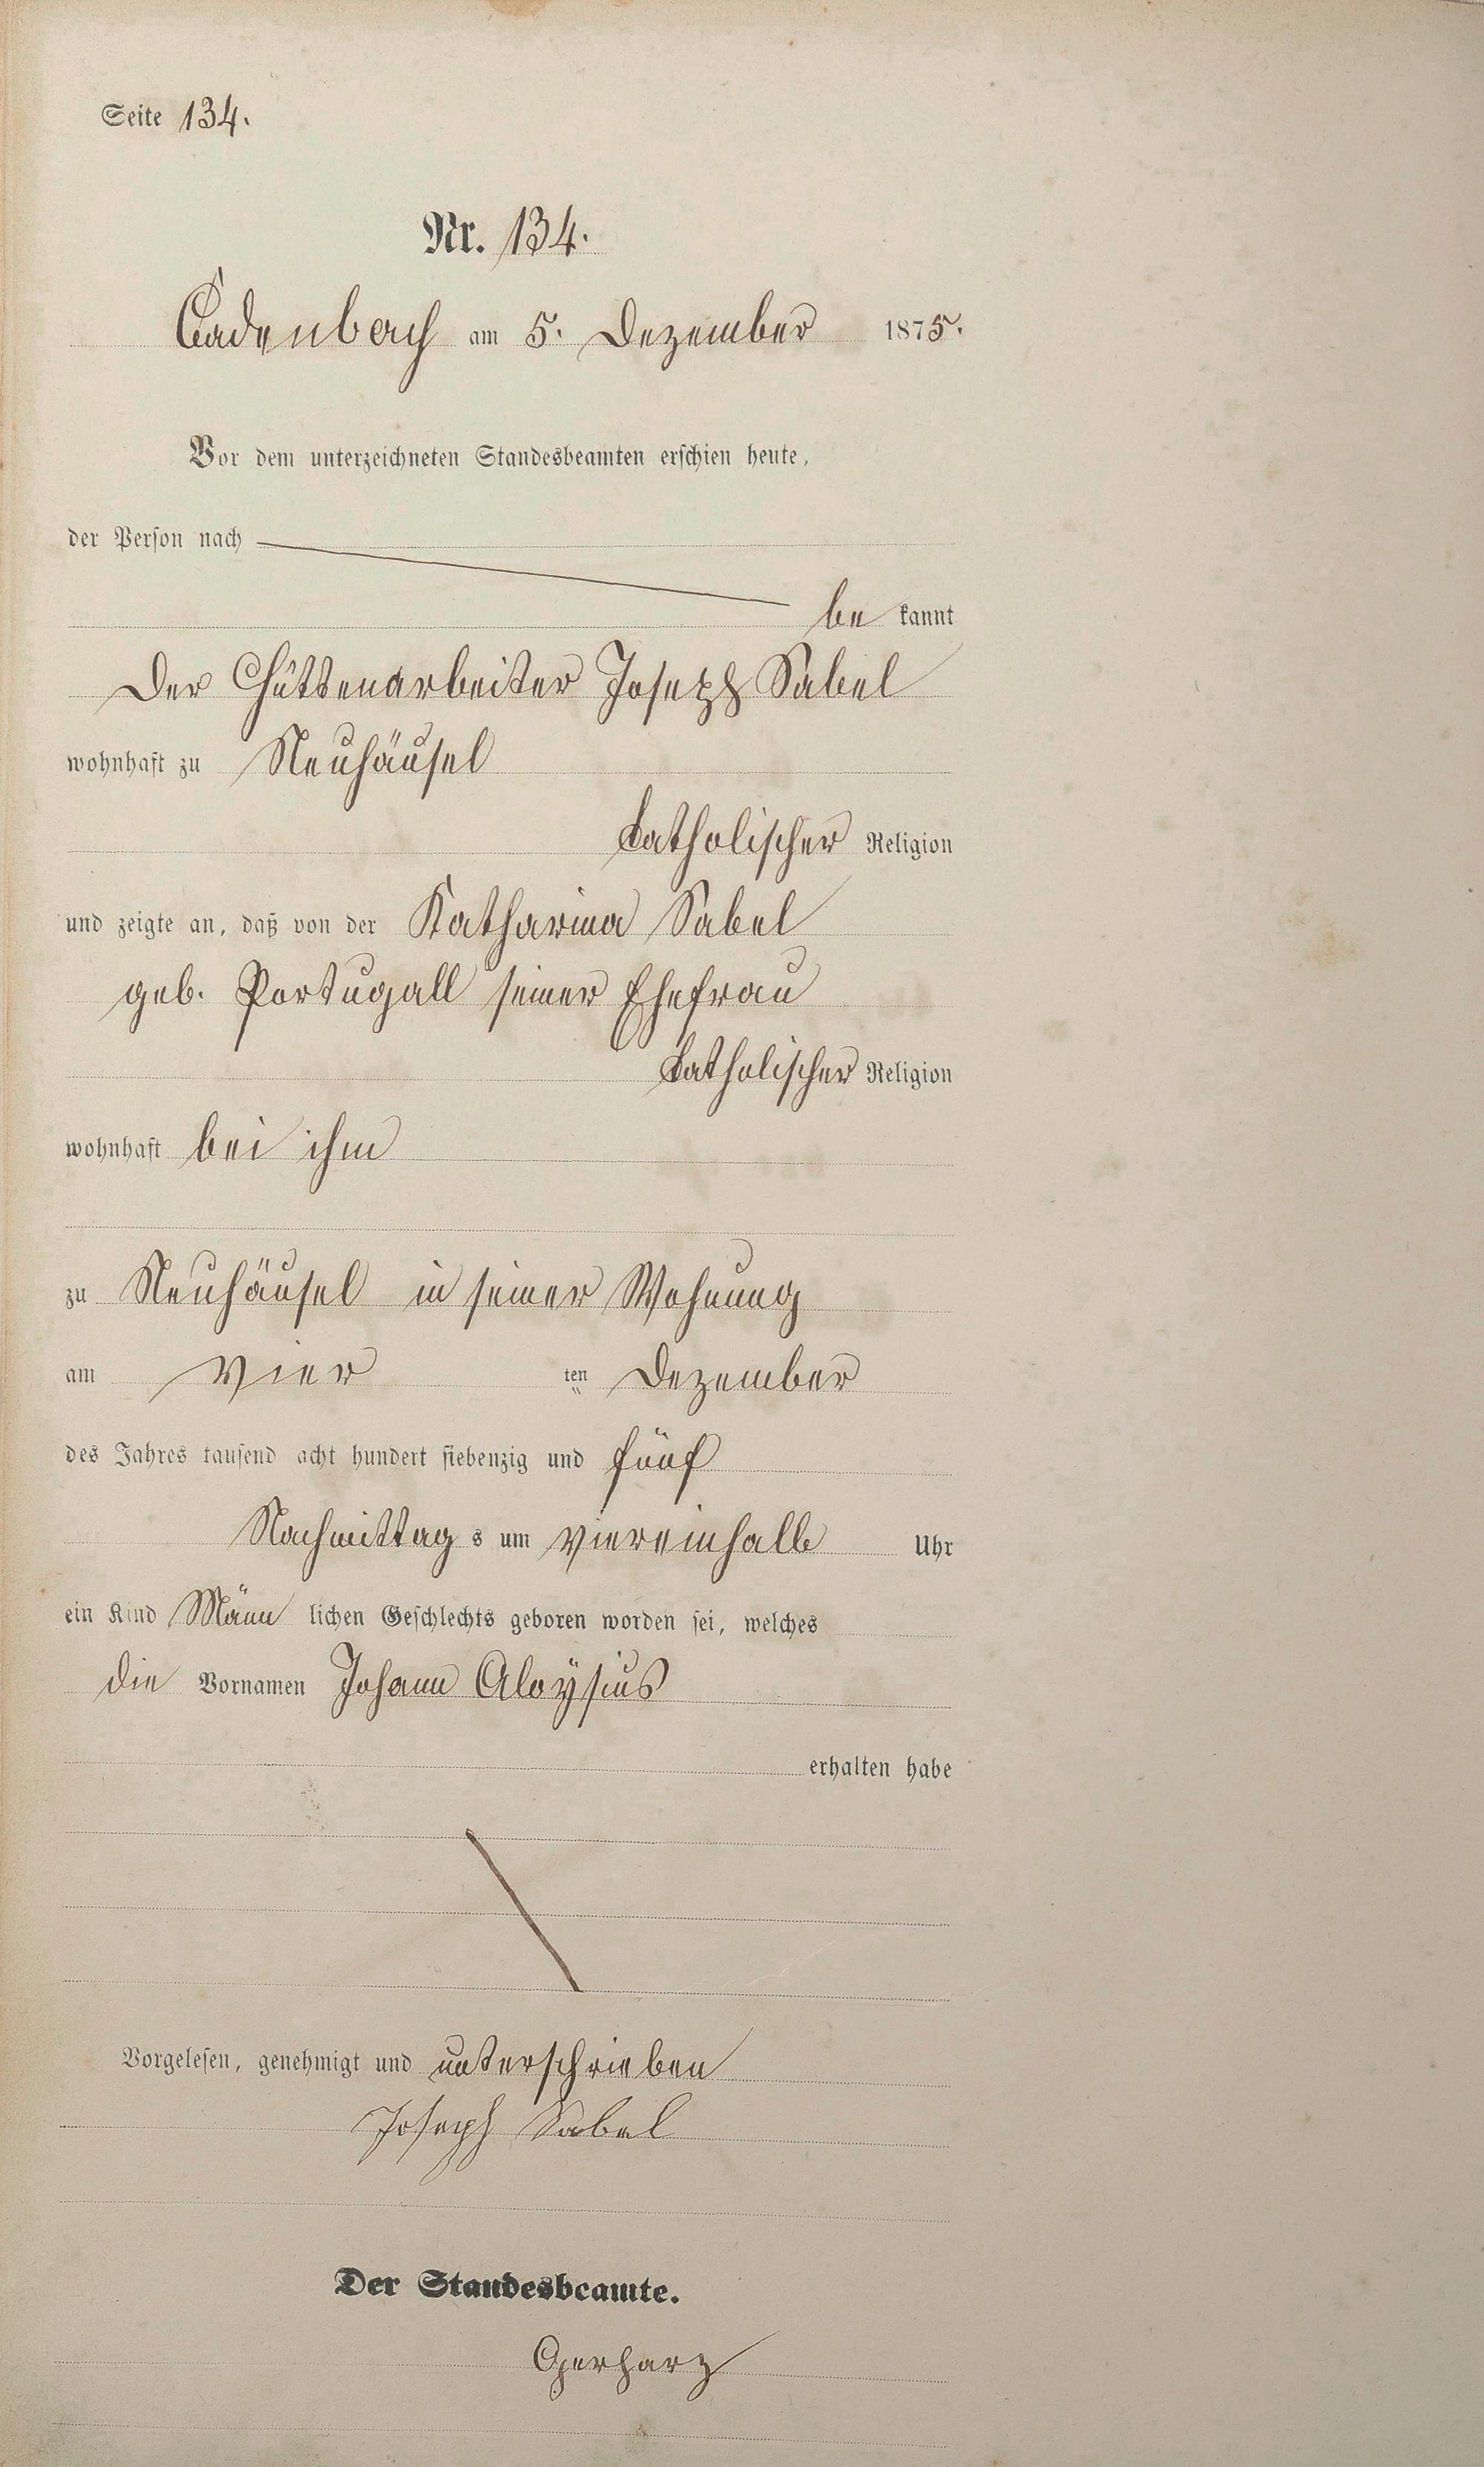 Seite 134.
Nr. 134.
Cadenbach am 5. Dezember 1875.
Vor dem unterzeichneten Standesbeamten erschien heute,
der Person nach
be kannt
Der Hüttenarbeiter Joseph Sabel
wohnhaft zu Neuhäusel
katholischer Religion
und zeigte an, daß von der Katharina Sabel
geb. Portugall seiner Ehefrau
katholischer Religion
wohnhaft bei ihm
zu Neuhäusel in seiner Wohnung
am vier ten Dezember
des Jahres tausend acht hundert siebenzig und fünf
Nachmittag s um viereinhalb Uhr
ein Kind Männ lichen Geschlechts geboren worden sei, welches
die Vornamen Johann Aloysius
erhalten habe
Vorgelesen, genehmigt und unterschrieben
Joseph Sabel
Der Standesbeamte.
Gerharz